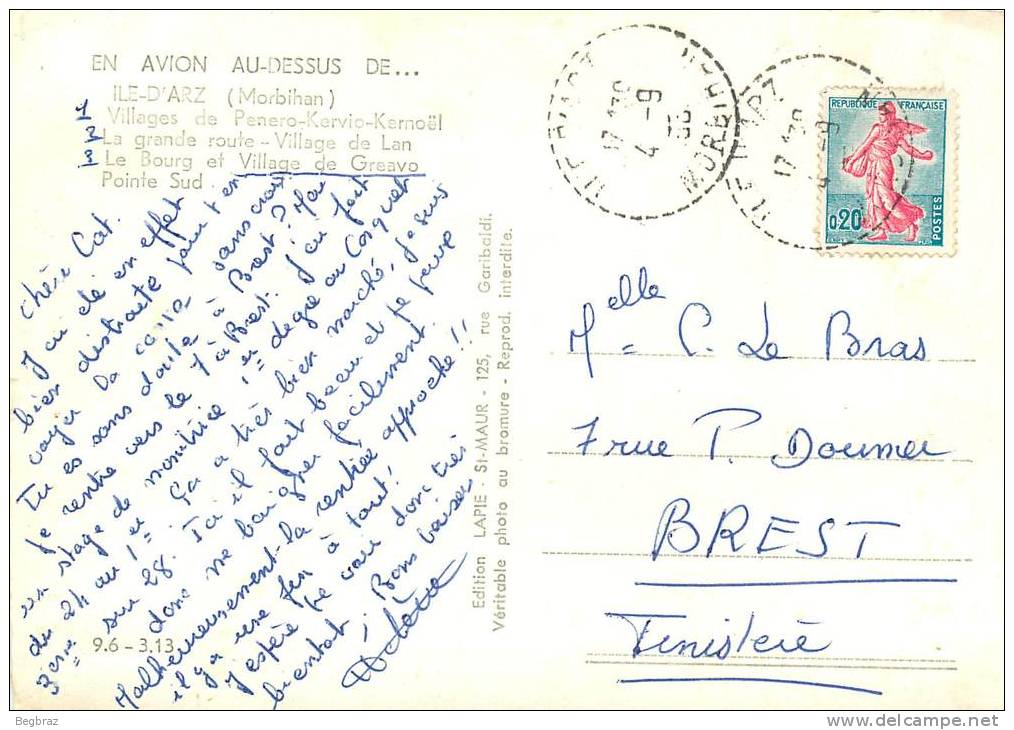 EN AVION AU-DESSUS DE...
ILE-D'ARZ (Morbihan)
1 Villages de Penero-Kervio-Kernoël
2 La grande route - Village de Lan
3 Le Bourg et Village de Greavo
Pointe Sud
Chère Cat.
J'ai été en effet
bien distraite pour t'en
voyer la
Tu es sans doute à Brest? Moi
je rentre vers le 7 à Brest. J'ai fait
un stage de monitrice 1er degré au Cosquet
du 24 au 1er Ça a très bien marché, je suis
3ème sur 28. Ici il fait beau et je peux
donc me baigner facilement.
Malheureusement la rentrée approche!!
il y a une fin à tout!
J'espère te voir donc très
bientôt! Bons baisers
9.6 - 3.13
Edition LAPIE - St-MAUR - 125, rue Garibaldi.
Véritable photo au bromure - Reprod. interdite.
ILE D'ARZ
17 H 30
4 - 9
MORBIHAN
ILE D'ARZ
17 H 30
REPUBLIQUE FRANÇAISE
0,20
POSTES
Melle C. Le Bras
7 rue P. Doumer
BREST
Finistère
Begbraz
http://www.delcampe.net